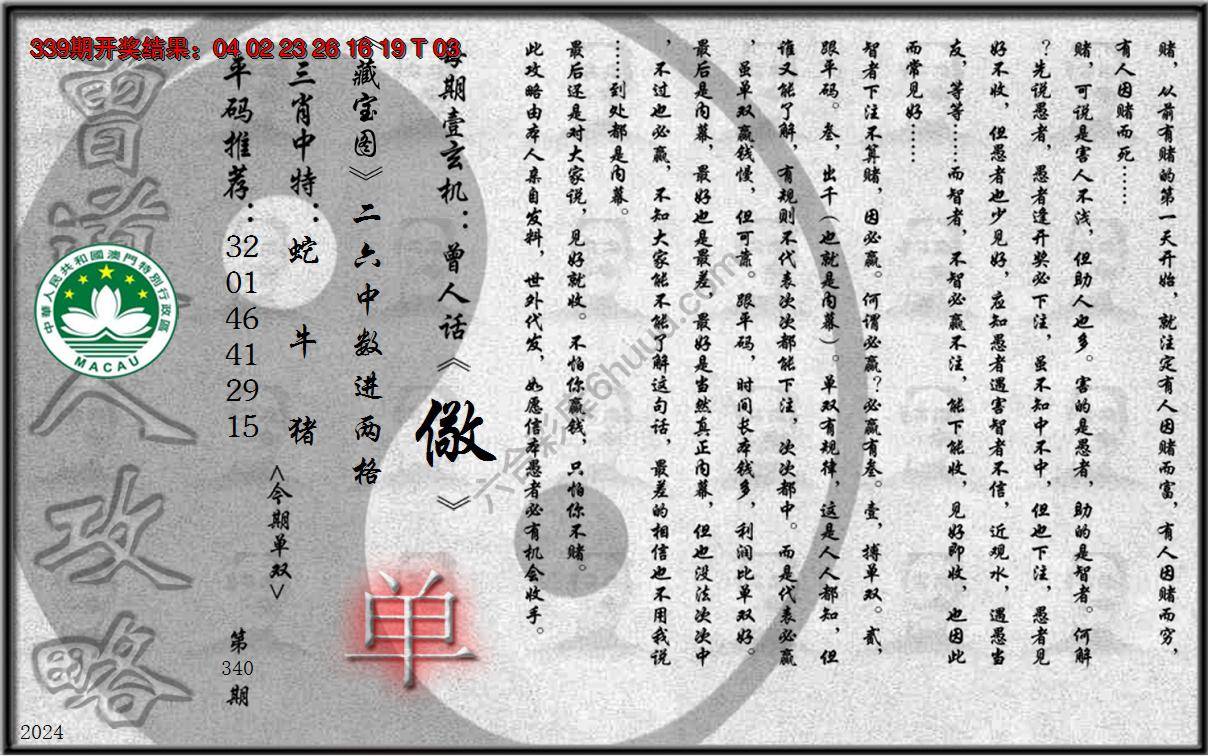 339期开奖结果：04 02 23 26 16 19 T 03
赌，从前有赌的第一天开始，就注定有人因赌而富，有人因赌而穷，
有人因赌而死……
赌，可说是害人不浅，但助人也多。害的是愚者，助的是智者。何解
？先说愚者，愚者逢开奖必下注，虽不知中不中，但也下注，愚者见
好不收，但愚者也少见好，应知愚者遇害智者不信，近观水，遇愚当
友，等等……而智者，不智必赢不注，能下能收，见好即收，也因此
而常见好……
智者下注不算赌，因必赢。何谓必赢？必赢有叁。壹，搏单双。贰，
跟平码。叁，出千（也就是内幕）。单双有规律，这是人人都知，但
谁又能了解，有规则不代表次次都能下注，次次都中。而是代表必赢
，虽单双赢钱慢，但可靠。跟平码，时间长本钱多，利润比单双好。
最后是内幕，最好也是最差，最好是当然真正内幕，但也没法次次中
，不过也必赢，不知大家能不能了解这句话，最差的相信也不用我说
……到处都是内幕。
最后还是对大家说，见好就收。不怕你赢钱，只怕你不赌。
此攻略由本人亲自发料，世外代发，如愿信本愚者必有机会收手。
每期壹玄机：曾人话《儆》
《藏宝图》二六中数进两格
三肖中特：蛇 牛 猪
<今期单双>
单
平码推荐：
32
01
46
41
29
15
第
340
期
曾道人攻略
中華人民共和國澳門特別行政區
MACAU
2024
六合彩库6huuu.com